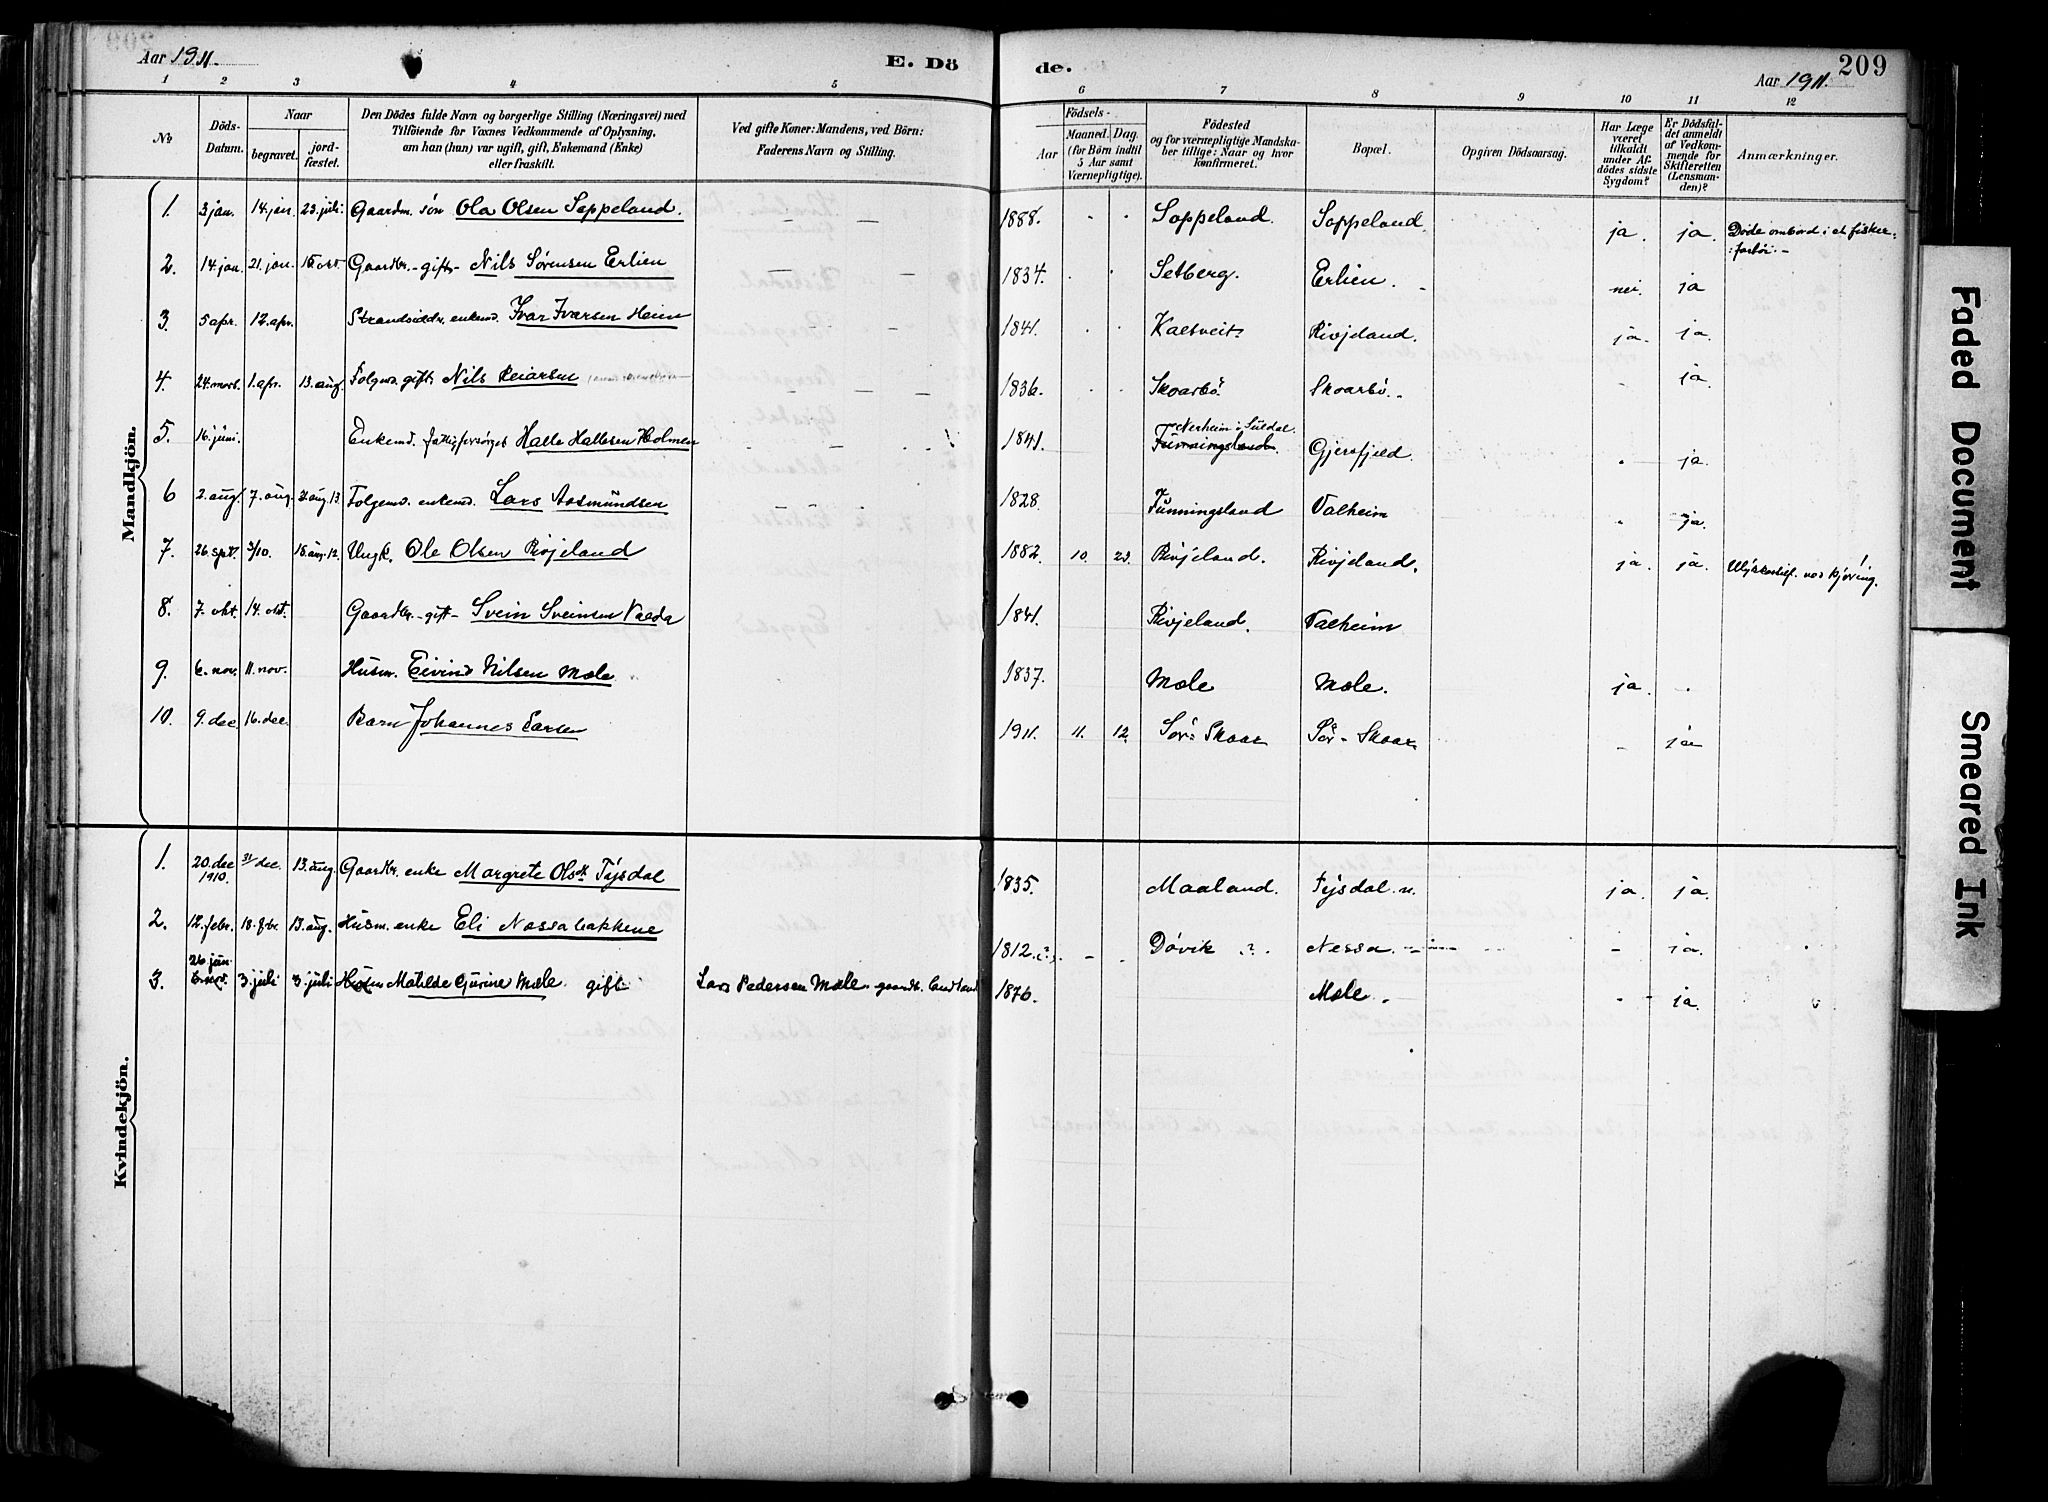 Aar 1911.
E. Dö
de.
Aar 1911.
209
1 2 3 4 5 6 7 8 9 10 11 12
No
Döds-Datum.
Naar
begravet.
jord-fæstet.
Den Dödes fulde Navn og borgerlige Stilling (Næringsvei) med
Tilföiende for Voxnes Vedkommende af Oplysning,
om han (hun) var ugift, gift, Enkemand (Enke)
eller fraskilt.
Ved gifte Koner: Mandens, ved Börn:
Faderens Navn og Stilling.
Födsels-
Aar
Maaned. Dag.
(for Börn indtil
5 Aar samt
Værnepligtige).
Födested
og for værnepligtige Mandska-
ber tillige: Naar og hvor
konfirmeret.
Bopæl.
Opgiven Dödsaarsag.
Har Læge
været
tilkaldt
under Af-
dödes sidste
Sygdom?
Er Dödsfal-
det anmeldt
af Vedkom-
mende for
Skifteretten
(Lensman-
den)?
Anmærkninger.
Mandkjön.
1. 3 jan. 14 jan. 23 juli. Gaardm. søn Ola Olsen Soppeland. — — 1888. Soppeland. Soppeland. ja. ja. Døde ombord i et fisker-
2. 14 jan. 21 jan. 15 okt. Gaardbr. - gift - Nils Sørensen Erlien — — 1834. Setberg. Erlien. nei. ja
3. 5 apr. 12. apr. Strandsidder. enkem. Ivar Ivarsen Heim — — 1841. Kaltveit Rivjeland. ja. ja.
4. 24. mars. 1. apr. 13. aug. Folgem. gift. Nils Reiarsen — — 1836. Skoarbø Skoarbø. - ja.
5. 16. juni. Enkem. fattigforsørget Halle Hallesen Holmen 1841. Nerheim i Suldal. Funningsland. Gjersfjeld. ja.
6 2. aug. 7. aug. 2 aug. 13. Folgem. enkem. Lars Aasmundsen 1828. Funningsland Valheim ja.
7. 26. spt. 3/10. 18. aug. 12. Ungk. Ole Olsen Rivjeland 1882. 10. 23. Rivjeland. Rivjeland. ja. ja. Ulykkestilf. ved kjøring.
8. 7. okt. 14. okt. Gaardbr. - gift - Svein Sveinsen Valda 1841. Rivjeland. Valheim
9. 6. nov. 11. nov. Husm. Eivind Nilsen Mæle 1837. Mæle Mæle. ja.
10. 9. dec. 16. dec. Barn Johannes Larsen 1911. 11. 12. Sør-Skoar Sør-Skoar - ja
Kvindekjön.
1. 20. dec. 1910. 31/ dec. 13. aug. Gaardbr. enke Margrete Olsdt. Tysdal 1835. Maaland. Tysdal. n. ja. ja.
2. 12. febr. 18. febr. 13. aug. Husm. enke Eli Nessabakkene 1812. (?) Døvik ?. Nessa. - ja.
3. 26. jun. 3. juli 3. juli Matilde Gurine Mæle. gift Lars Pedersen Mæle - 1876. Mæle. - ja.
Faded Document
Smeared Ink